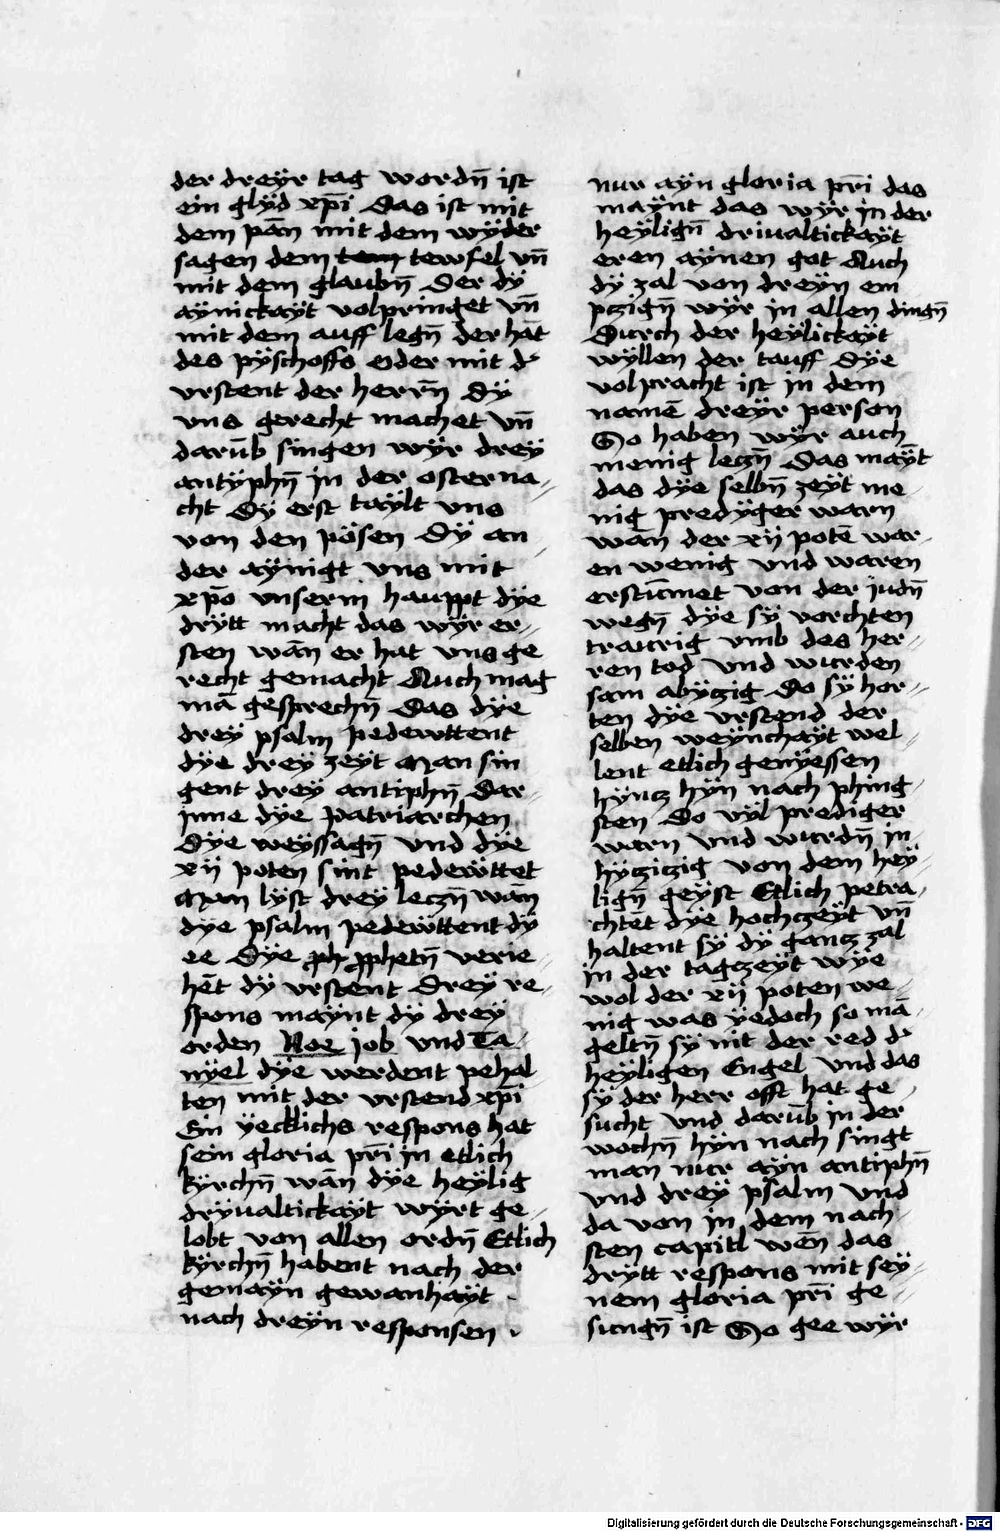 der dreÿr tag wordn̄ ist
ein glÿd xp̄i Das ist mit
dem pān mit dem wÿder
sagen dem tem tewfel vn̄
mit dem glaubn̄ Der dÿ
aÿnickaÿt volpringet vn̄
mit dem auff legn̄ der hāt
des pÿschoffs oder mit d'
vrstent der herrn̄ dÿ
vns gerecht machet vn̄
darūb singen wÿr dreÿ
antÿphn̄ in der osterna-
cht Dÿ erst taÿlt vns
von den pösen Dÿ an
der aÿnigt vns mit
xp̄o vnserm hauppt dÿe
drÿtt macht das wÿr er-
sten wān er hat vns ge
recht gemacht Auch mag
mā gesprechn̄ Das dÿe
dreÿ psalm pedewttent
dÿe dreÿ zeÿt Man sin
gent dreÿ antiphn̄ Dar-
inne dÿe patriarchen
Dÿe weÿssagn̄ vnd dÿe
xij poten sint pedewttet
Man lÿst dreÿ leczn̄ wān
dÿe psalm pedewttent dÿ
ee Dÿe ph pphetn̄ verie
hēt dÿ vrstent Dreÿ re-
spons maÿnt dÿ dreÿ
orden Noe job vnd Da-
nÿel dÿe werdent pehal
ten mit der vrstend xp̄i
Ein ÿecklichs respons hat
sein gloria pr̄i in etlich
kÿrchn̄ wān dÿe heÿlig
drÿualtickaÿt wÿrt ge-
lobt von allen ordn̄ Etlich
kÿrchn̄ habent nach der
gemaÿn gewanhaÿt
nach dreÿn responsen
nur aÿn gloria pr̄i das
maÿnt das wÿr in der
heÿlign̄ driualtickaÿt
eren aÿnen got Auch
dÿ zal von dreÿn em
pzign̄ wÿr in allen dingn̄
Durch der heÿlickaÿt
wÿllen der tauff Dÿe
volpracht ist in dem
namē dreÿr person
So haben wÿr auch
menig leczn̄ Das maÿt
das dÿe selbn̄ zeÿt me
nig predÿger warn
wān der xij potē war-
en wenig vnd waren
erstūmet von der judn̄
wegn̄ dÿe sÿ vorchten
traurig vmb des her-
ren tod vnd wurden
sam abÿzig Do sÿ hor-
ten dÿe vrstend der
selben weÿnchaÿt wel-
lent etlich genÿessen
hÿncz hÿn nach phing-
sten Do vÿl prediger
warn vnd wurdn̄ in-
hÿcziczig von dem heÿ-
lign̄ geÿst Etlich petra-
chtēt dÿe hochczeÿt vn̄
haltent sÿ dÿ gancz zal
in der tagczeÿt wÿe
wol der xij poten we-
nig was ÿedoch so mā-
geltn̄ sÿ nit der red d'
heÿligen Engel vnd das
sÿ der herr offt hat ge-
sucht vnd darūb in der
wochn̄ hÿn nach singt
man nur aÿn antiphn̄
vnd dreÿ psalm vnd
da von in dem nach-
sten capitl wēn das
drÿtt respons mit seÿ-
nem gloria pr̄i ge-
sungn̄ ist So gee wÿr
Digitalisierung gefördert durch die Deutsche Forschungsgemeinschaft - DFG